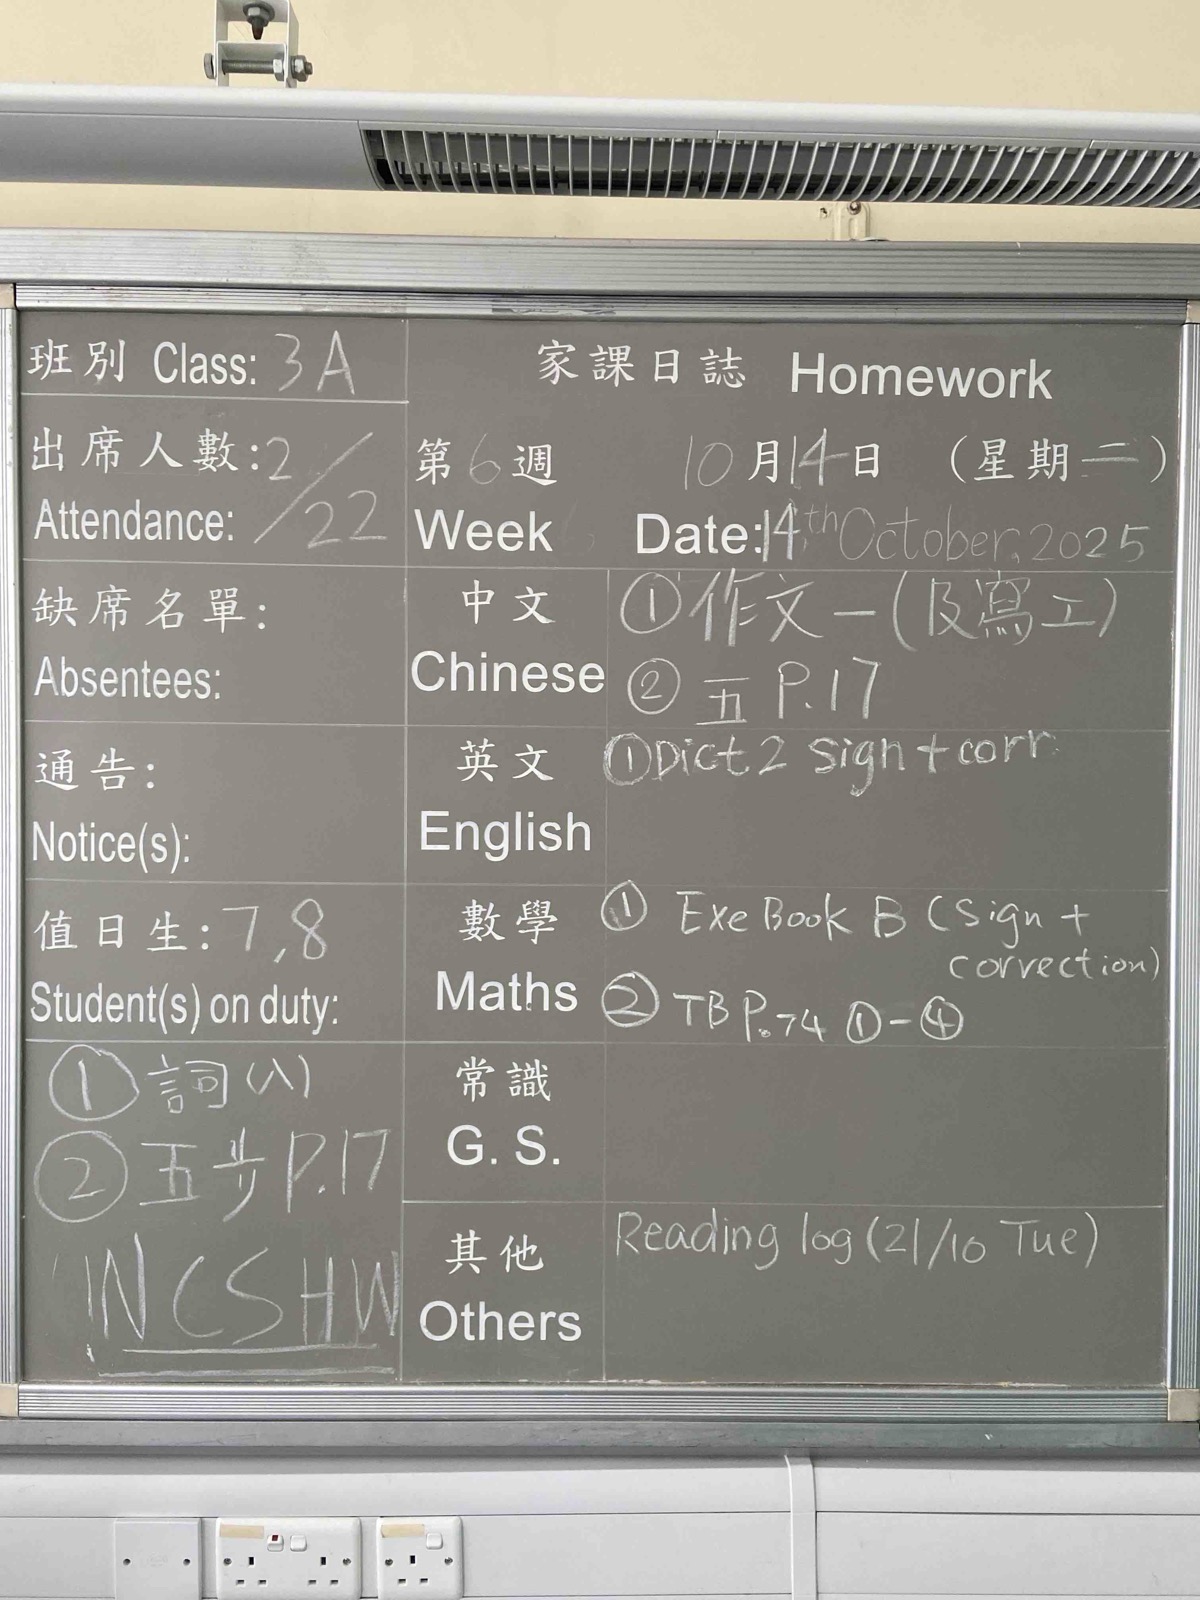 班別 Class: 3A
出席人數: 2/22
Attendance:
缺席名單:
Absentees:
通告:
Notice(s):
值日生: 7,8
Student(s) on duty:
① 詞(八)
② 五步 P.17
NCS HW
家課日誌 Homework
第6週 10月14日 (星期二)
Week Date: 14th October, 2025
中文 ① 作文一(及寫工)
Chinese ② 五 P.17
英文 ① Dict 2 sign + corr.
English
數學 ① Exe Book B (sign +
correction)
Maths ② TB P.74 ①-④
常識
G. S.
其他 Reading log (21/10 Tue)
Others